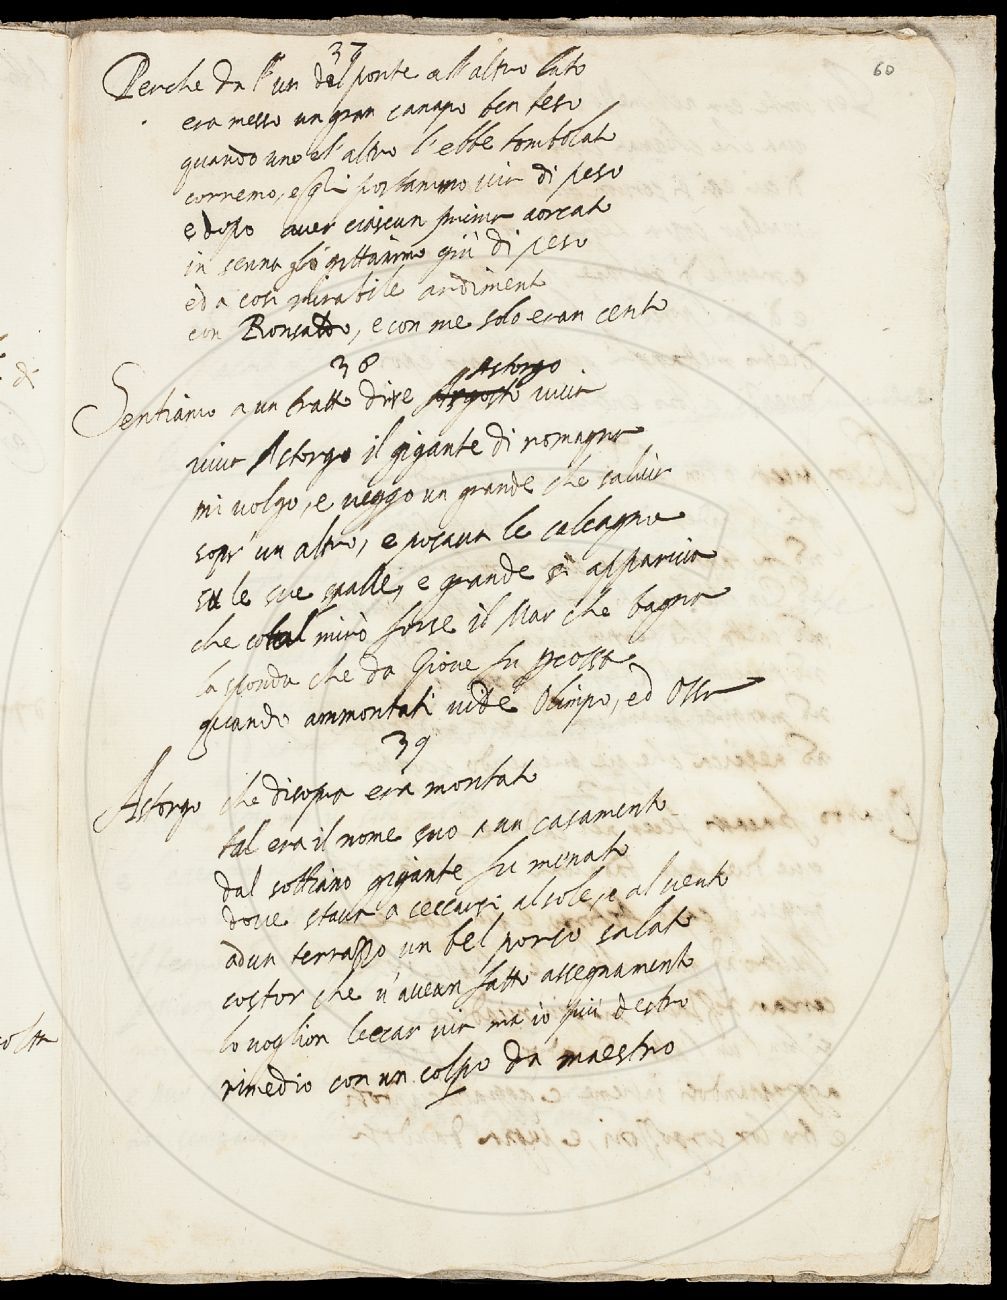 60
37
Perche da l'un del ponte all'altro lato
era messo un gran canapo ben teso
quando uno el'altro l'ebbe tombolato
corremo, e portammo via di peso
e dopo aver ciascun prima
in senna gittammo giù di peso
ed a così mirabile ardimento
con Ronsardo, e con me solo eran cento
38
Sentiamo a un tratto dire Astorgo viva
viva Astorgo il gigante di romagna
mi volgo, e veggo un grande che saliva
sopr' un altro, e posava le calcagna
su le sue spalle, e grande sì appariva
che cotal mirò forse il Mar che bagna
la sponda che da Giove fu
quando ammontati vide Olimpo, ed Ossa
39
Astorgo che disopra era montato
tal era il nome suo a un casamento
dal sottano gigante fu menato
dove stava a seccarsi al sole, e al vento
ad un terrazzo un bel porco salato
costor che n'avean fatto assegnamento
lo voglion leccar via ma io più destro
rimedio con un colpo da maestro
di